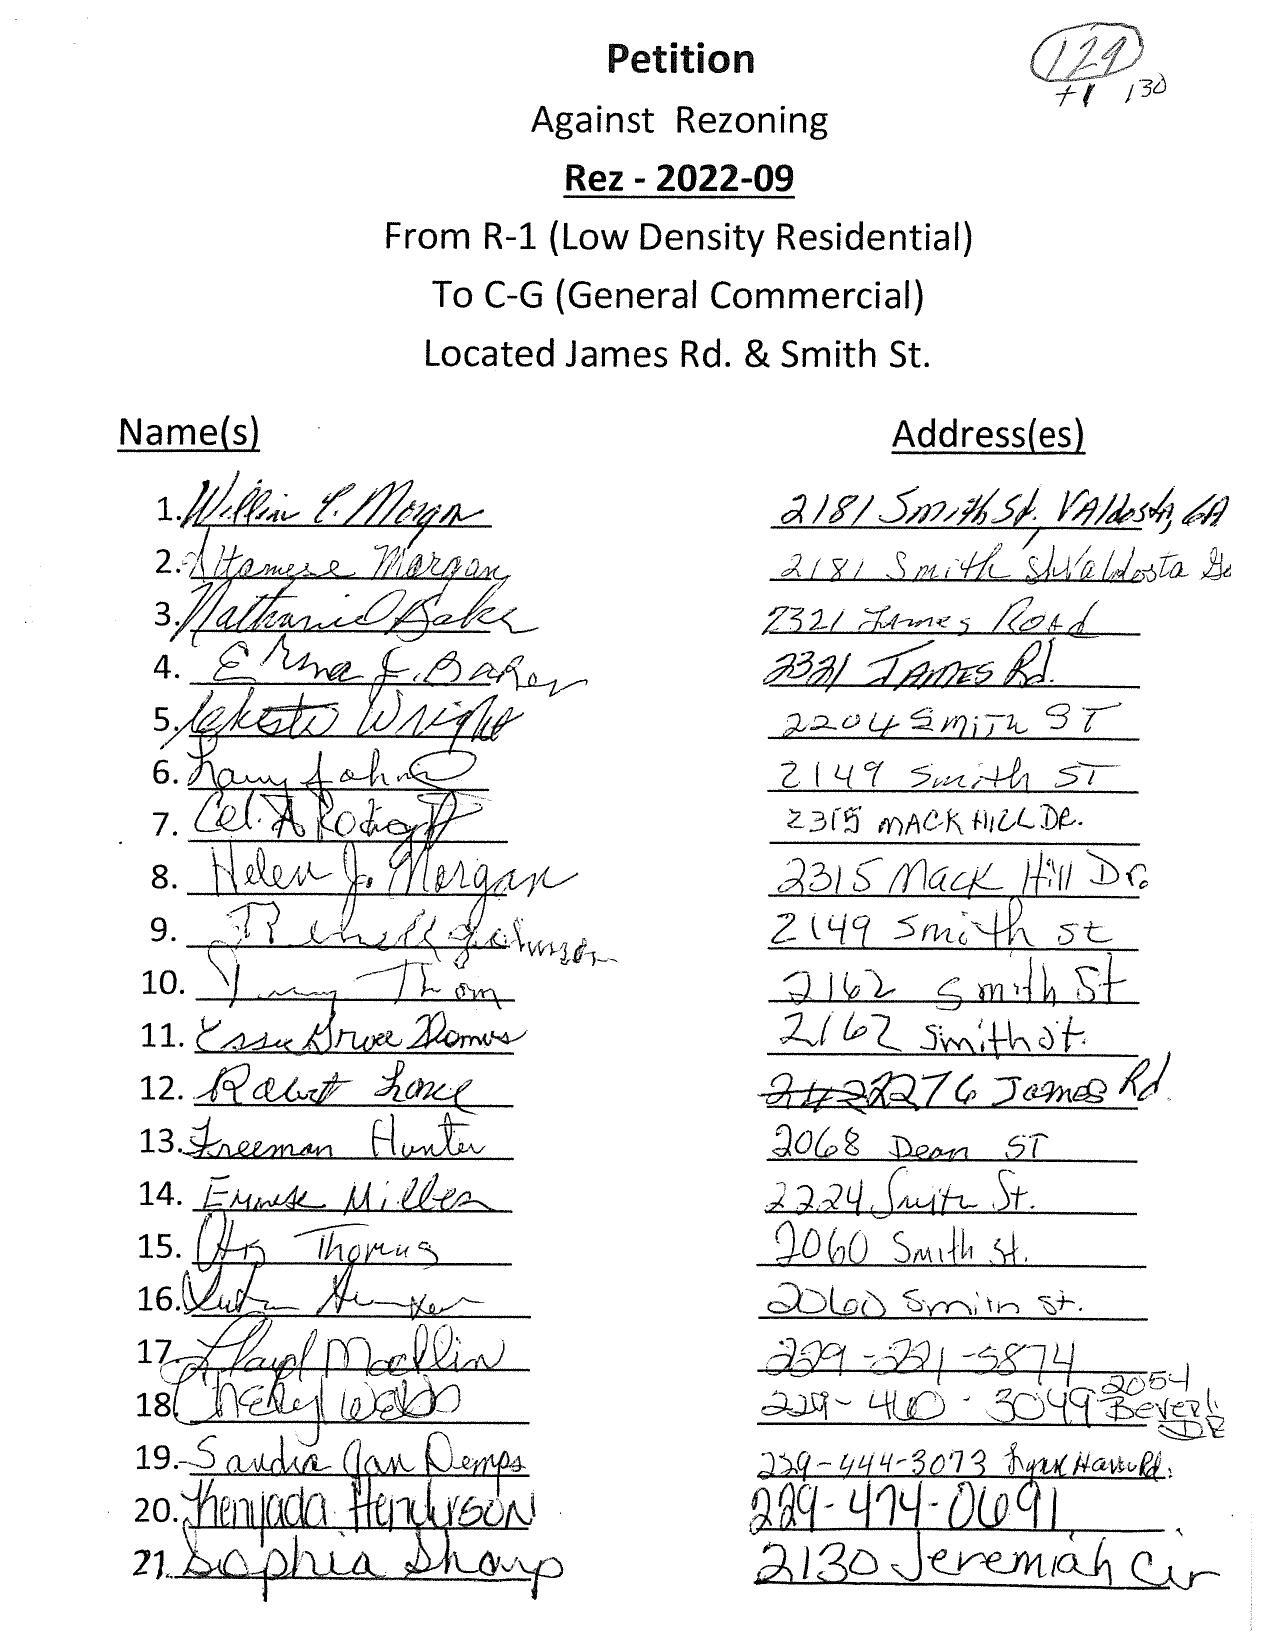 Petition
129
+1 130
Against Rezoning
Rez - 2022-09
From R-1 (Low Density Residential)
To C-G (General Commercial)
Located James Rd. & Smith St.
Name(s) Address(es)
1. Morgan 2181 Smith St. VAldosta, GA
2. Altamese Morgan 2181 Smith St Valdosta Ga
3. Nathaniel Baker 2321 James Road
4. Erma J. Baker 2321 JAMES Rd.
5. Wright 2204 SMiTh ST
6. Larry 2149 Smith ST
7. 2315 MACK HILL DR.
8. Helen J. Morgan 2315 Mack Hill Dr.
9. Johnson 2149 Smith st
10. Thom 2162 Smith St
11. Essie 2162 Smith St.
12. Robert 2276 James Rd.
13. Freeman Hunter 2068 Dean ST
14. Miller 2224 Smith St.
15. Thomas 2060 Smith St.
16. 2060 Smith St.
17. Macklin 229-221-5874
18. Webb 229-460-3049 2054 Beverly DR
19. Sandra Jan Demps 229-444-3073 Haven Rd.
20. Kenyada Henderson 229-474-0691
21. Sophia Sharp 2130 Jeremiah Cir